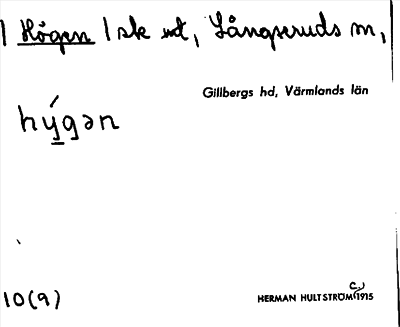 | Högen | sk mt, Långseruds m,
Gillbergs hd, Värmlands län
hýgən
10(9)
HERMAN HULTSTRÖM (c.) 1915